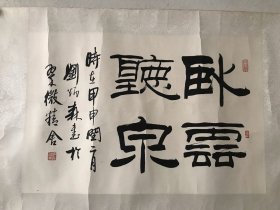 臥雲
聽泉
時在甲申閏二月
劉炳森書於
精舍